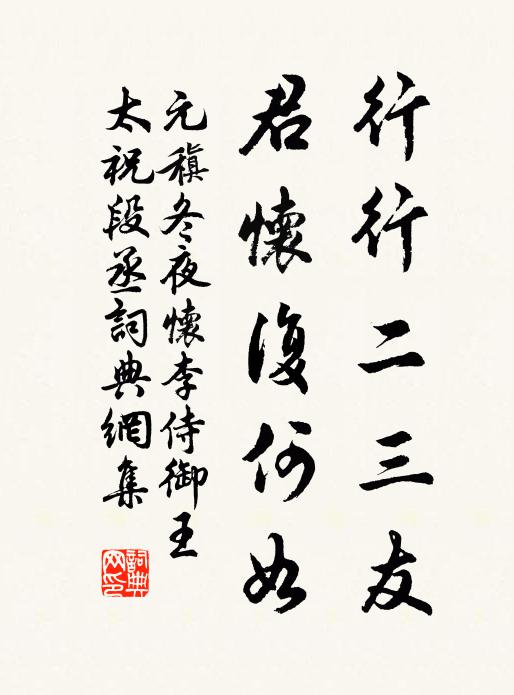 行行二三友
君懷復何如
元稹冬夜懷李侍御王
太祝段丞詞典網集
詞典網印